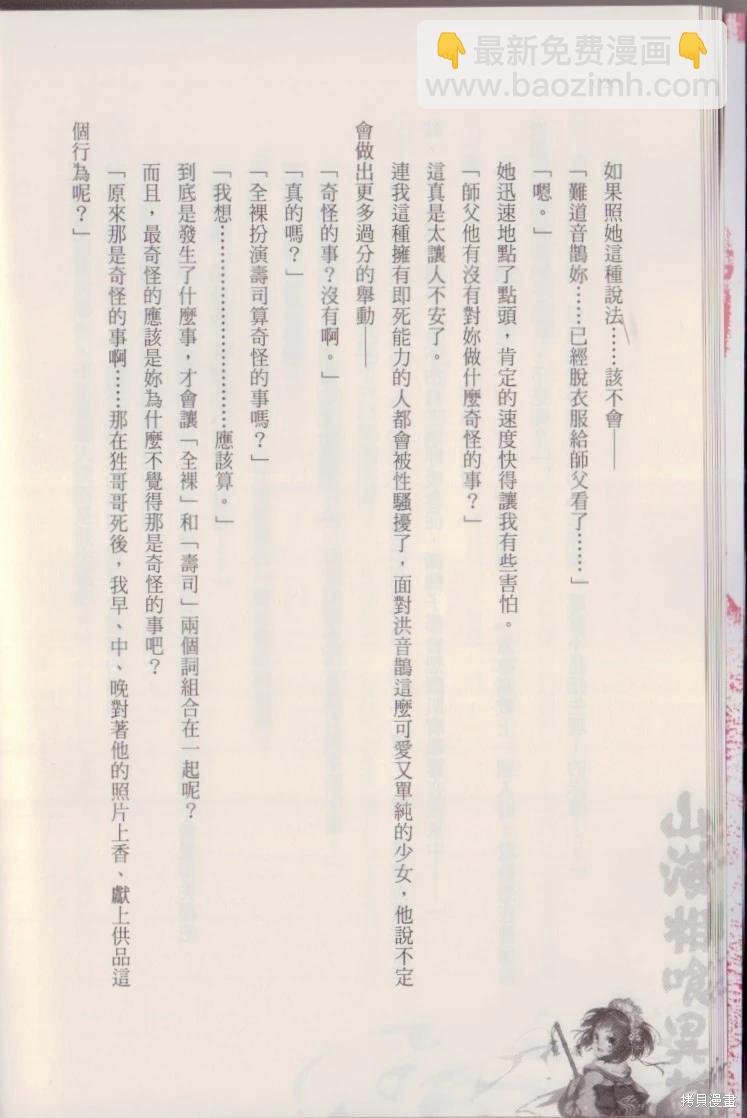 👇最新免费漫画👇
www.baozimh.com
如果照她這種說法……該不會——
「難道音鵲妳……已經脫衣服給師父看了……」
「嗯。」
她迅速地點了點頭，肯定的速度快得讓我有些害怕。
「師父他有沒有對妳做什麼奇怪的事？」
這真是太讓人不安了。
連我這種擁有即死能力的人都會被性騷擾了，面對洪音鵲這麼可愛又單純的少女，他說不定
會做出更多過分的舉動——
「奇怪的事？沒有啊。」
「真的嗎？」
「全裸扮演壽司算奇怪的事嗎？」
「我想…………………………應該算。」
到底是發生了什麼事，才會讓「全裸」和「壽司」兩個詞組合在一起呢？
而且，最奇怪的應該是妳為什麼不覺得那是奇怪的事吧？
「原來那是奇怪的事啊……那在狌哥哥死後，我早、中、晚對著他的照片上香、獻上供品這
個行為呢？」
山海相喰異
拷貝漫畫